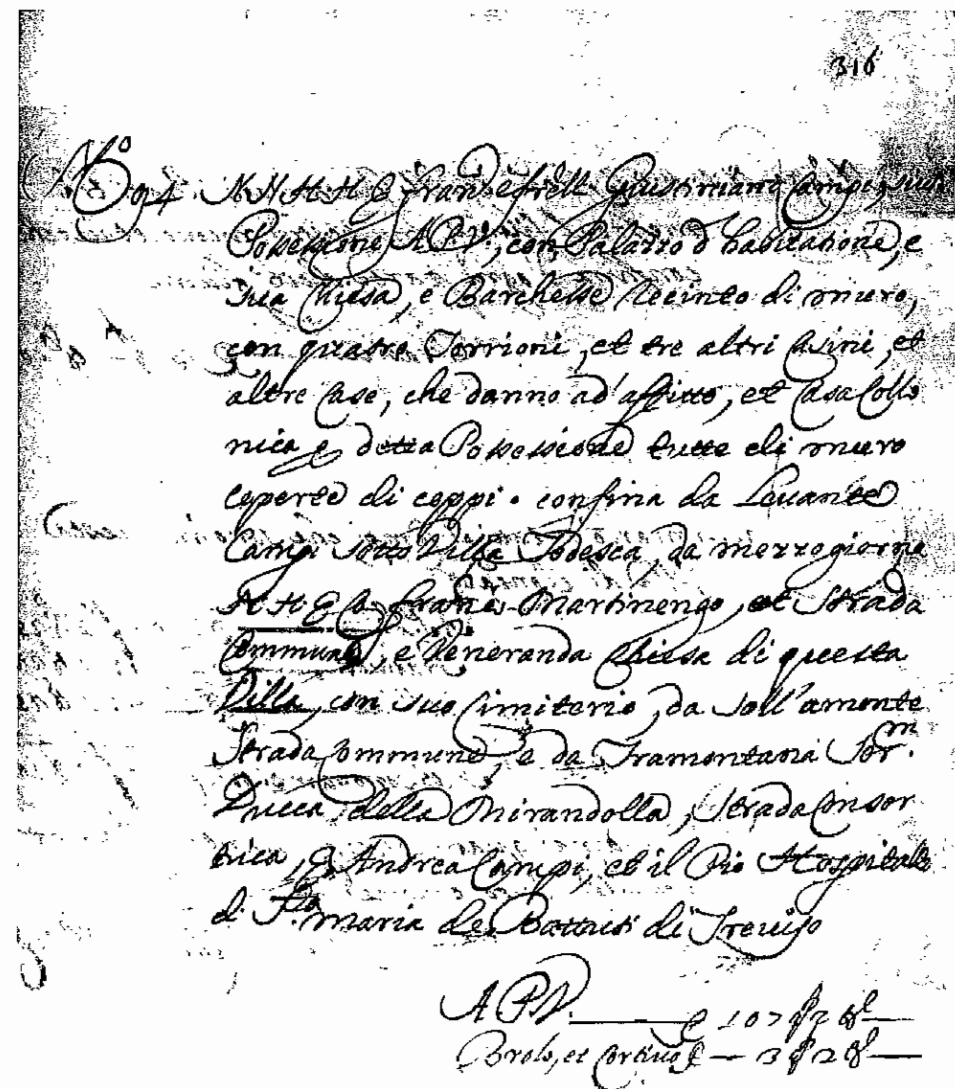 316
N.º 94 N. N. H. H. G. Franc. e frell. Giustiniano Campi, sua
Possessione A.P.V., con Palazzo d'habitatione, e
sua Chiesa, e Barchesse Recinto di muro,
con quatro Torrioni, et tre altri Casini, et
altre Case, che danno ad'affitto, et Casa Collo
nica detta Possessione tutte di muro
coperte di coppi. confina da Levante
Campi sotto Villa Todesca, da mezzogiorno
Martinengo, et Strada
Commune, e Veneranda Chiesa di questa
Villa, con suo Cimiterio, da Soll'amonte
Strada Commune, e da Tramontana Ser.m
Ducca della Mirandolla, Strada Consor
tiva, Andrea Campi, et il Pio Hospitall
di S.ta Maria de Battuti di Treviso
A.P.V. — C 107 2
Brolo, et Cortivo — 3 2